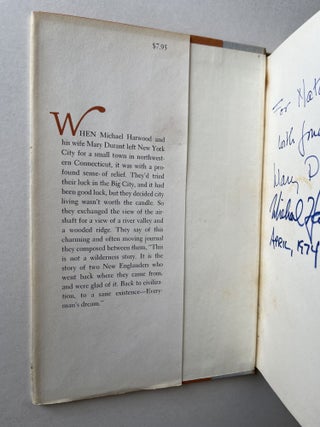 $7.95
WHEN Michael Harwood and
his wife Mary Durant left New York
City for a small town in northwest-
ern Connecticut, it was with a pro-
found sense of relief. They'd tried
their luck in the Big City, and it had
been good luck, but they decided city
living wasn't worth the candle. So
they exchanged the view of the air-
shaft for a view of a river valley and
a wooded ridge. They say of this
charming and often moving journal
they composed between them, "This
is not a wilderness story. It is the
story of two New Englanders who
went back where they came from,
and were glad of it. Back to civiliza-
tion, to a sane existence—Every-
man's dream."
For
with
Mary D
Michael
April, 1974